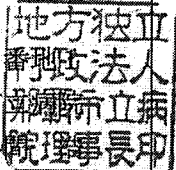 地方独立
行政法人
市立病
院理事長印